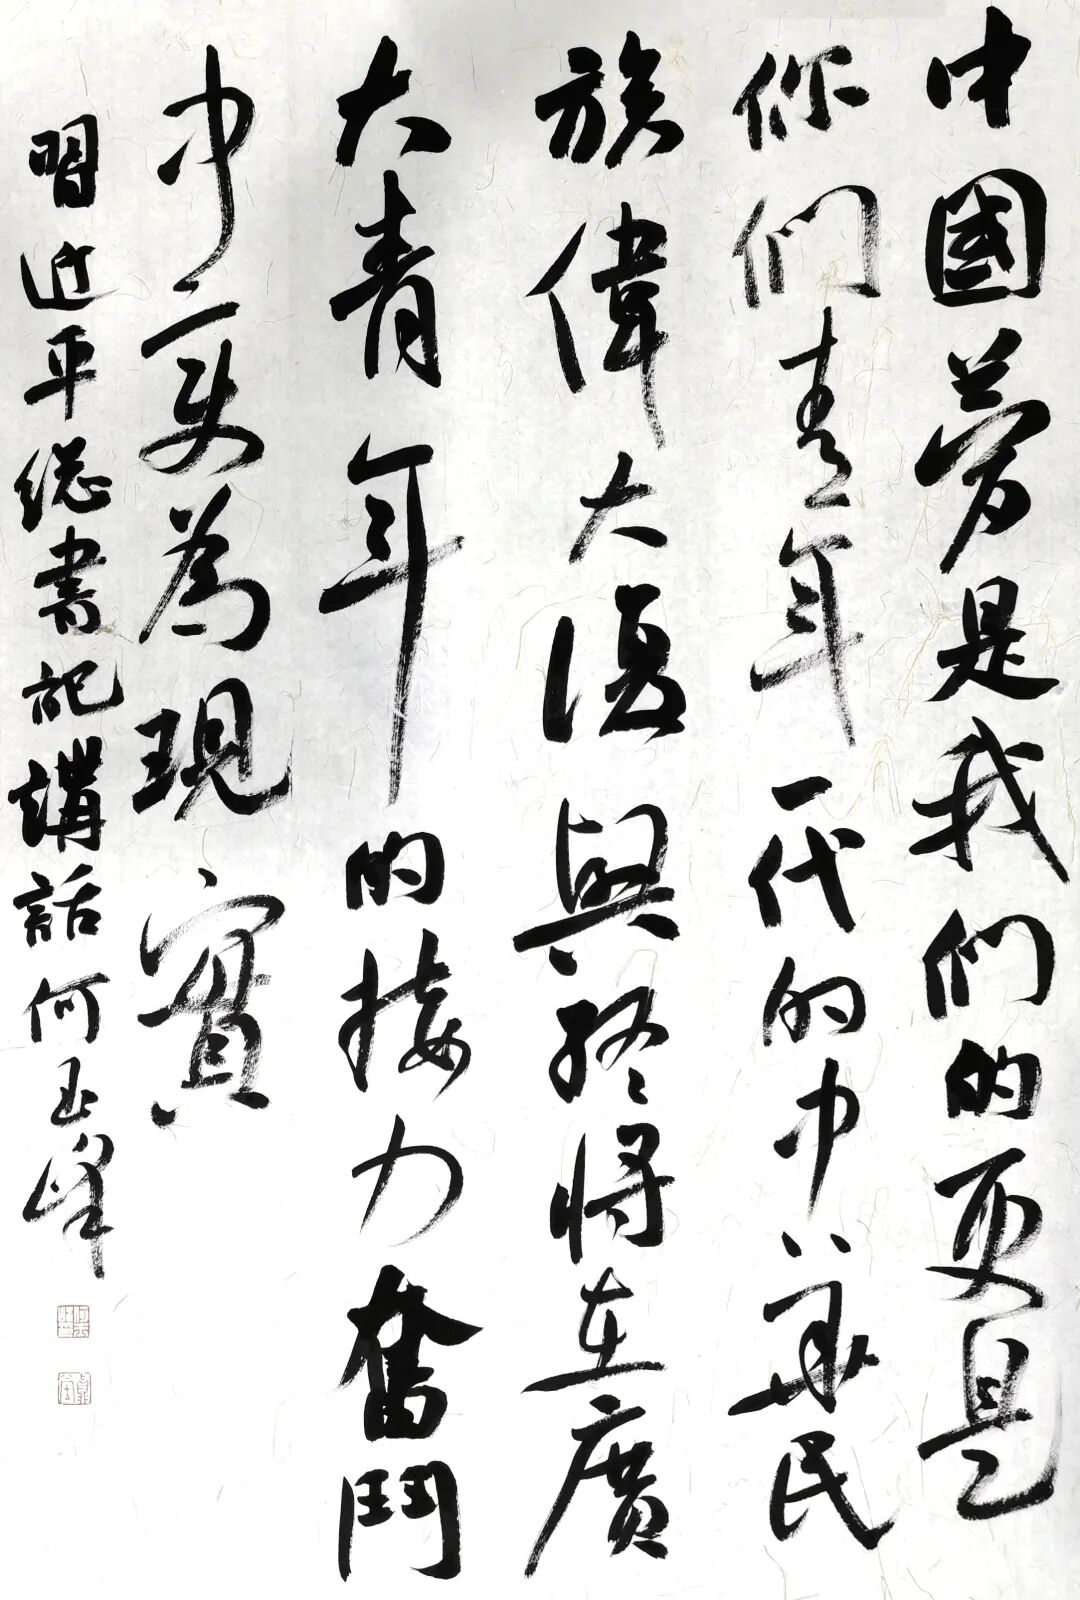 中國夢是我們的更是
你們青年一代的中華民
族偉大復興終將在廣
大青年的接力奮鬥
中变為現實
習近平総書記講話何玉峰